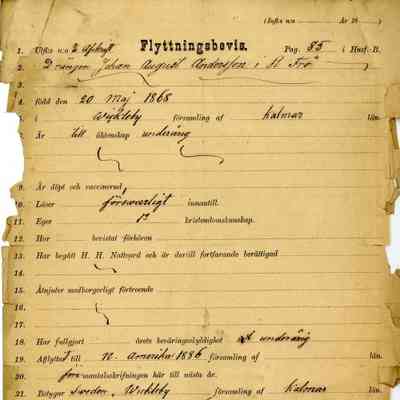 (Infts n:o          År 18    )
1. Utfts n:o 2 Afskrift Flyttningsbevis. Pag. 85 i Husf.-B.
2. Drängen Johan August Andersson i St Frö
3.
4. född den 20 Maj 1868
5. i Wickleby församling af Kalmar län.
7. Är till äktenskap underårig
8.
9. Är döpt och vaccinerad,
10. Läser försvarligt innantill.
11. Eger kristendomskunskap.
12. Har bevistat förhören
13. Har begått H. H. Nattvard och är dertill fortfarande berättigad
14.
15. Åtnjuter medborgerligt förtroende
16.
17.
18. Har fullgjort årets beväringsskyldighet underårig
19. Afflyttat till N. Amerika 1886 församling af län.
20. före mantalsskrifningen här till nästa år.
21. Betygar Sweden, Wickleby församling af Kalmar län.